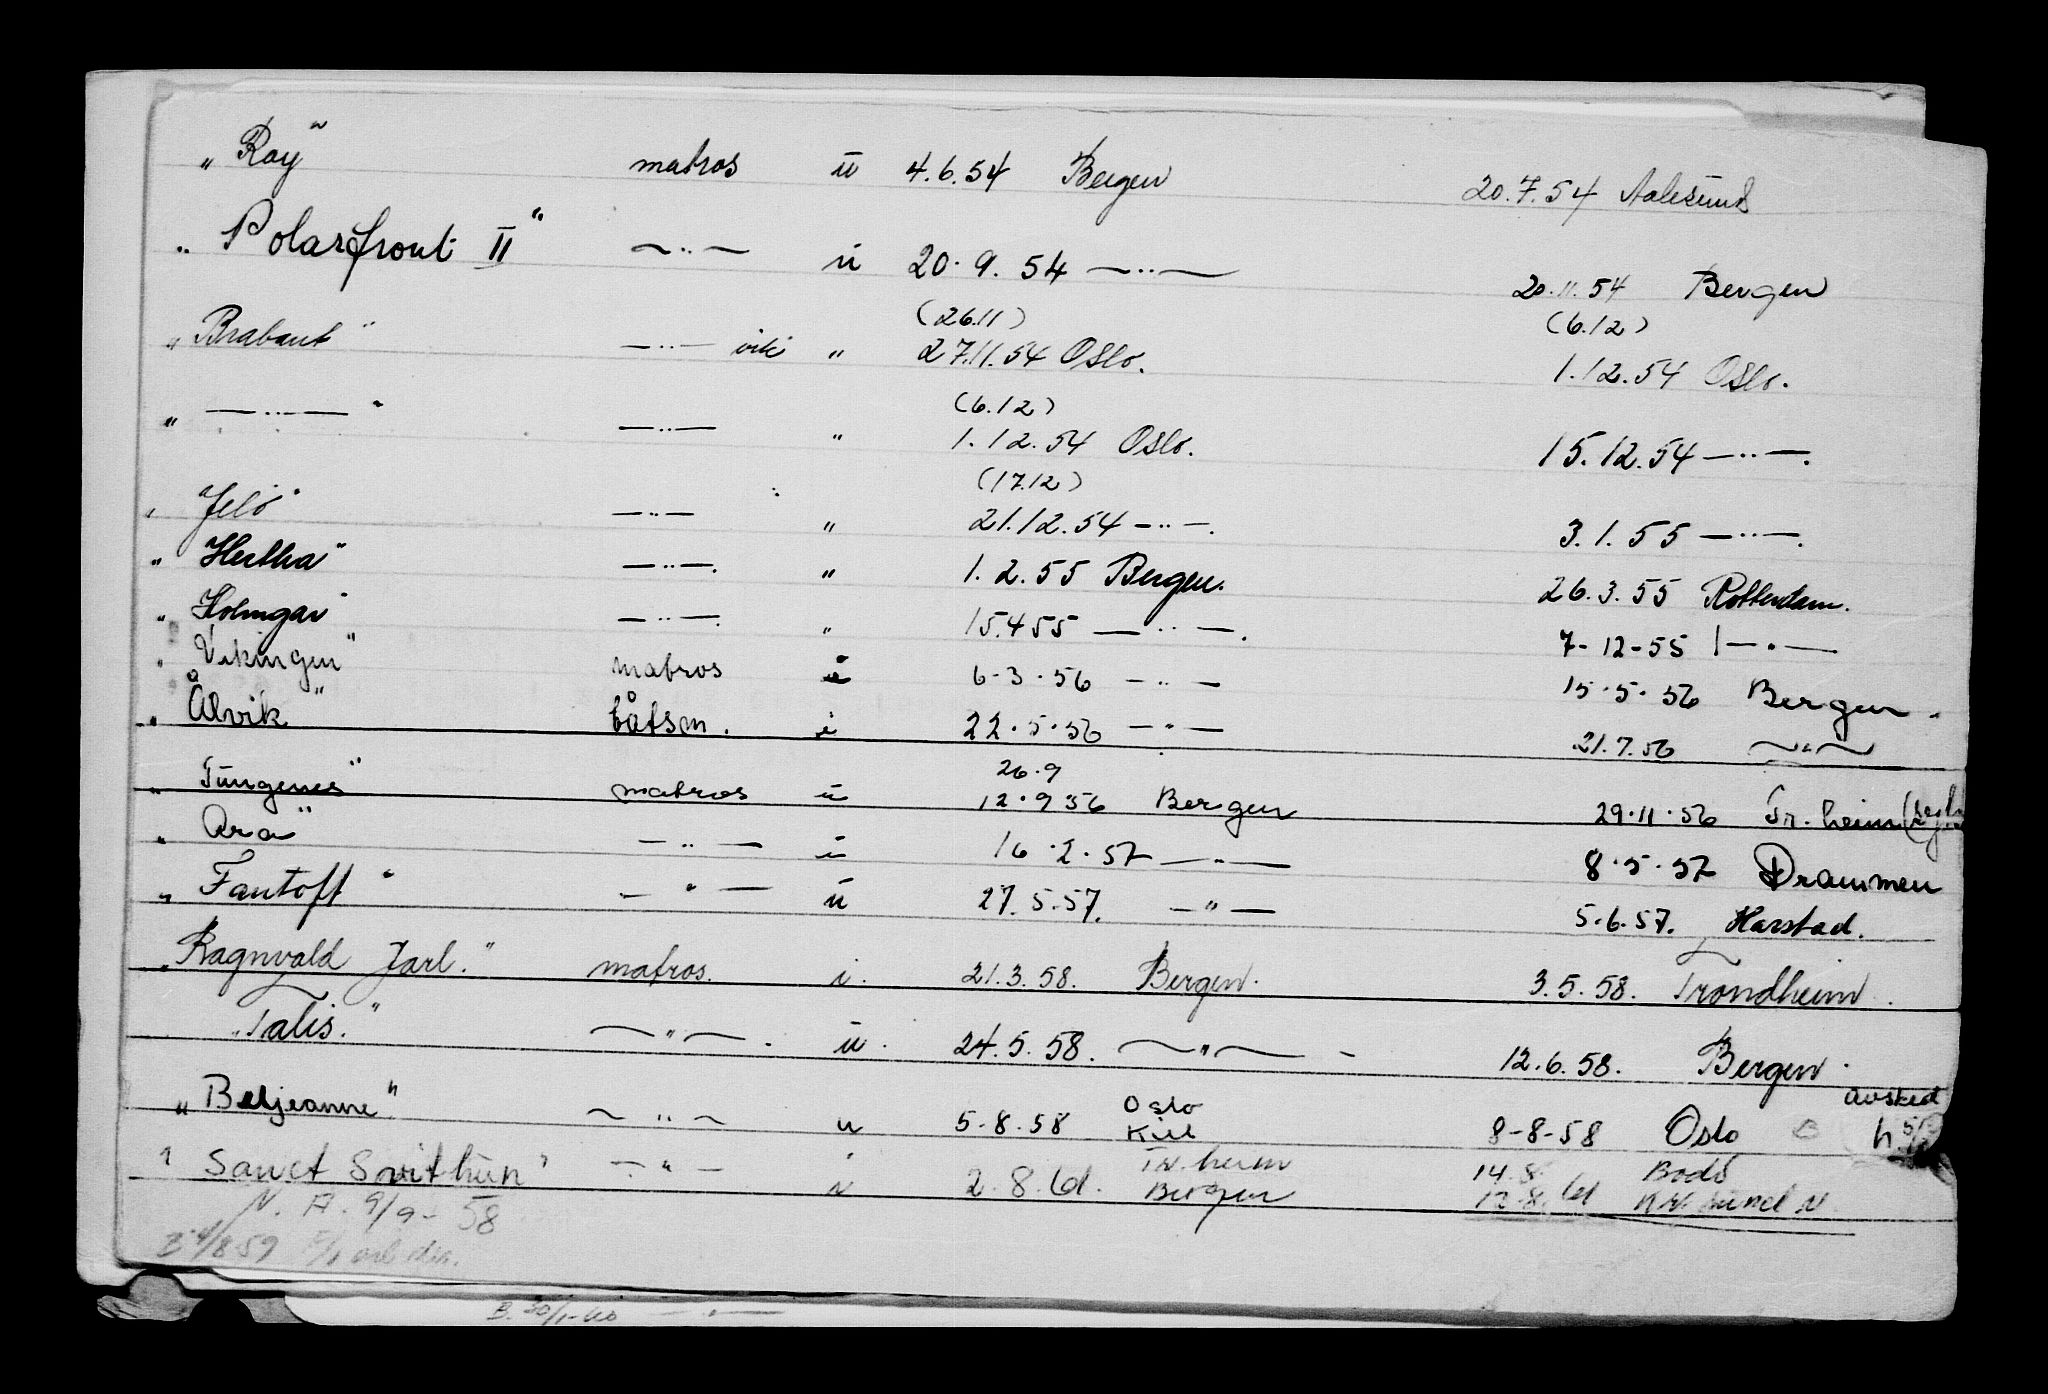 „ Ray" matros u 4.6.54 Bergen 20.7.54 Aalesund
„ Polarfront II" —"— u 20.9.54 —"— 20.11.54 Bergen
(26.11) (6.12)
„ Brabant" —"— vik " 27.11.54 Oslo. 1.12.54 Oslo.
(6.12)
„ —"— " —"— " 1.12.54 Oslo. 15.12.54 —"—.
(17.12)
„ Jelö" —"— " 21.12.54 —"—. 3.1.55 —"—.
„ Hertha" —"—. " 1.2.55 Bergen. 26.3.55 Rotterdam.
„ Holmgar" —"—. " 15.4.55 —"—. 7-12-55 —"—
„ Vikingen" matros u 6-3.56 —"— 15.5.56 Bergen.
„ Ålvik" båtsm. i 22.5.56 —"— 21.7.56 —"—
26.9
„ Tungenes" matros u 12.9 56 Bergen 29.11.56 Tr.heim
„ Ara" —"— i 16.2.57 —"— 8.5.57 Drammen
„ Fantoft" —"— u 27.5.57. —"— 5.6.57. Harstad.
„ Ragnvald Jarl." matros. i. 21.3.58. Bergen. 3.5.58. Trondheim.
„ Talis." —"—. u. 24.5.58. —"— - 12.6.58. Bergen.
Oslo avsked
„ Beljeanne". —"— u 5-8.58 Kiel 8-8-58 Oslo
Tr.heim 14.8. Bodö
" Sanct Svithun" —"— i 2.8.61. Bergen 12.8.61 Kr.sund N.
N. A. 9/9-58
8 59
B. 30/1-60 —"—